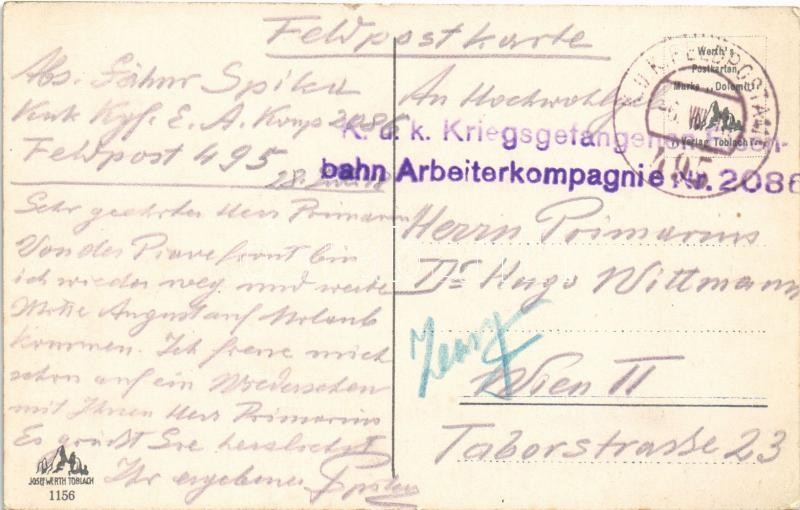 Feldpostkarte
Abs. Fähnr Spitz
Kuk Kgf. E. A. Komp 2086
Feldpost 495
28. Juli 18
Sehr geehrter Herr Primarius
Von der Piavefront bin
ich wieder weg und werde
Mitte August auf Urlaub
kommen. Ich freue mich
schon auf ein Wiedersehen
mit Ihnen Herr Primarius
Es grüßt Sie herzlichst
Ihr ergebener
JOSEF WERTH TOBLACH
1156
Werth's
Postkarten
Marke „Dolomit"
Verlag Toblach
K.U.K. FELDPOSTAMT
495
An Hochwohlg
K. u. k. Kriegsgefangenen Eisen-
bahn Arbeiterkompagnie Nr. 2086
Herrn Primarius
Dr Hugo Wittmann
Wien II
Taborstraße 23